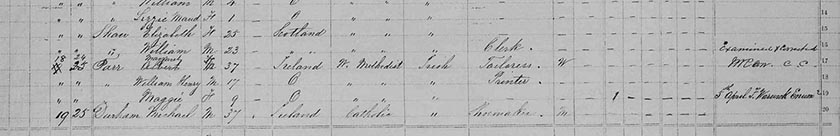 " " " William M 4 - O " "
" " " Lizzie Maud F 1 - O " " 14
" " Shaw Elizabeth F 25 - Scotland " " 15
" " " William M 23 - " " " Clerk. Examined & Corrected 16
18 24 Parr Margaret F 37 - Ireland W. Methodist Irish Tailoress. W 17
" " " William Henry M 17 - O " " Printer. 18
" " " Maggie F 9 - O " " 1 - - - - 19
19 25 Durham Michael M 37 - Ireland Catholic " Shoemaker. M 20